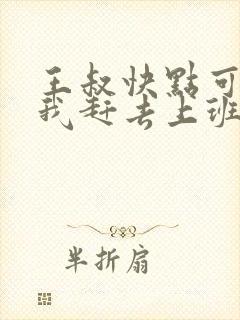 王叔快點可
我赶去上班
半折扇